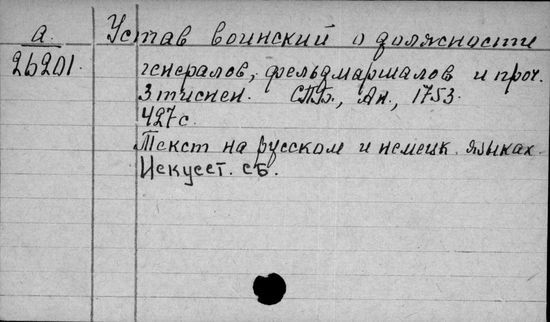 а.
26201.
Устав воинский о должности
генералов, фельдмаршалов и проч.
3 тиснен. СПБ., Ан., 1753.
427 с.
Текст на русском и немецк. языках.
Искусст. сб.